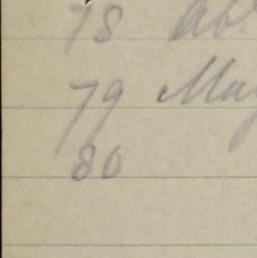 78
79 May
80